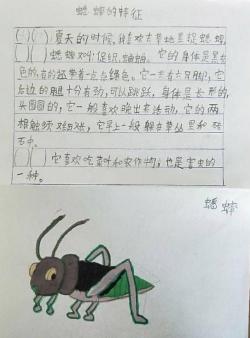 蟋蟀的特征
夏天的时候,我喜欢去草地里捉蟋蟀。
蟋蟀又叫:促织、蛐蛐。它的身体是黑古
色的,有的还带着一点点绿色。它一共有六只脚,它
后边的腿十分有劲,可以跳跃,身体是长形的,
头圆圆的,它一般喜欢晚出来活动,它的两
根触须又细又长,它早上一般躲在草丛里和砖
石中。
它喜欢吃菜叶和农作物,也是害虫的
一种。
蟋蟀